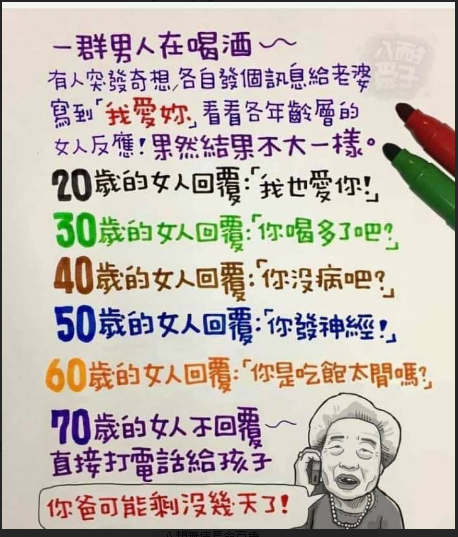 一群男人在喝酒～
有人突發奇想，各自發個訊息給老婆
寫到「我愛妳」，看看各年齡層的
女人反應！果然結果不大一樣。
20歲的女人回覆：「我也愛你！」
30歲的女人回覆：「你喝多了吧？」
40歲的女人回覆：「你沒病吧？」
50歲的女人回覆：「你發神經！」
60歲的女人回覆：「你是吃飽太閒嗎？」
70歲的女人不回覆～
直接打電話給孩子
你爸可能剩沒幾天了！